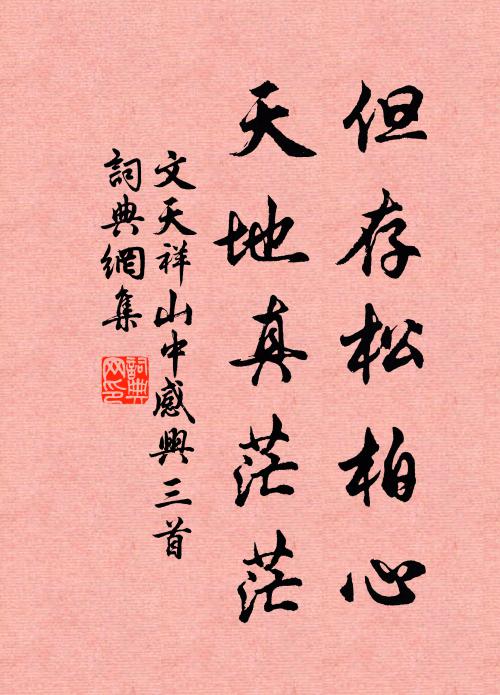 但存松柏心
天地真茫茫
文天祥山中感興三首
詞典網集
詞典
网印